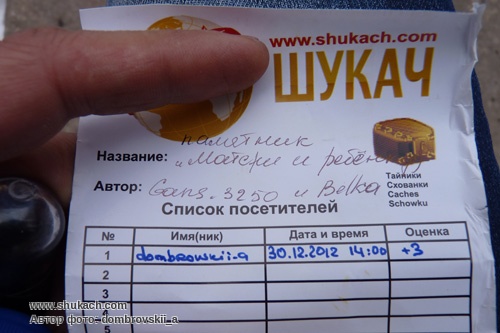 www.shukach.com
ШУКАЧ
памятник
Название: „Матери и ребёнку
Тайники
Схованки
Caches
Schowku
Автор: Gans.3250 и Belka
Список посетителей
№ Имя(ник) Дата и время Оценка
1 dombrowskii-a 30.12.2012 14:00 +3
2
3
4
5
www.shukach.com
Автор фото- dombrovskii_a